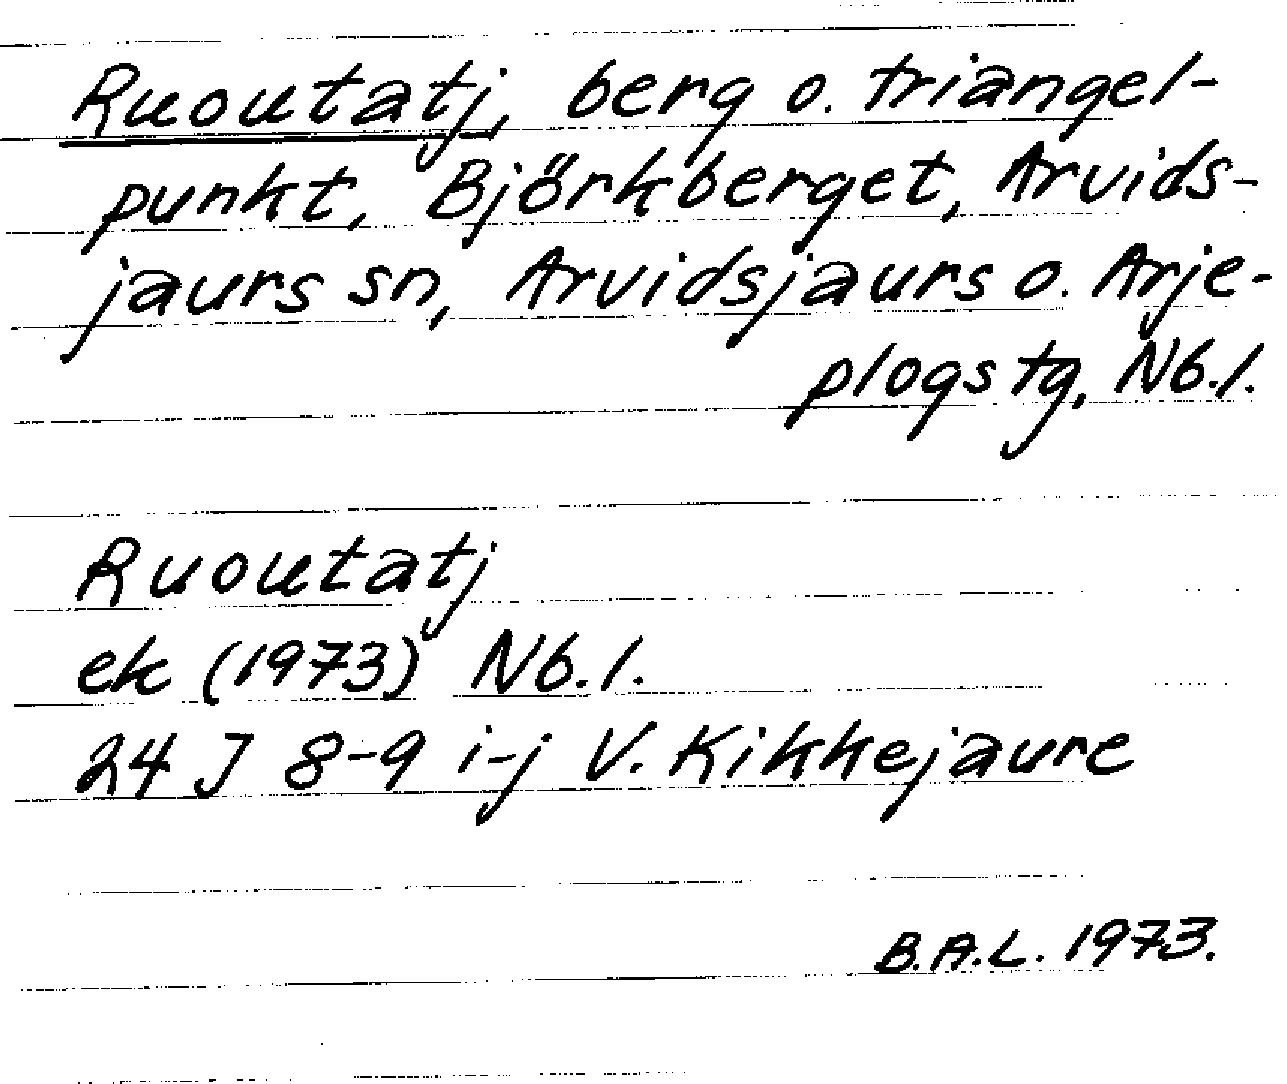 Ruoutatj, berg o. triangel-
punkt, Björkberget, Arvids-
jaurs sn, Arvidsjaurs o. Arje-
plogs tg, Nb.l.
Ruoutatj
ek (1973) Nb.l.
24 J 8-9 i-j V. Kikkejaure
B.A.L. 1973.